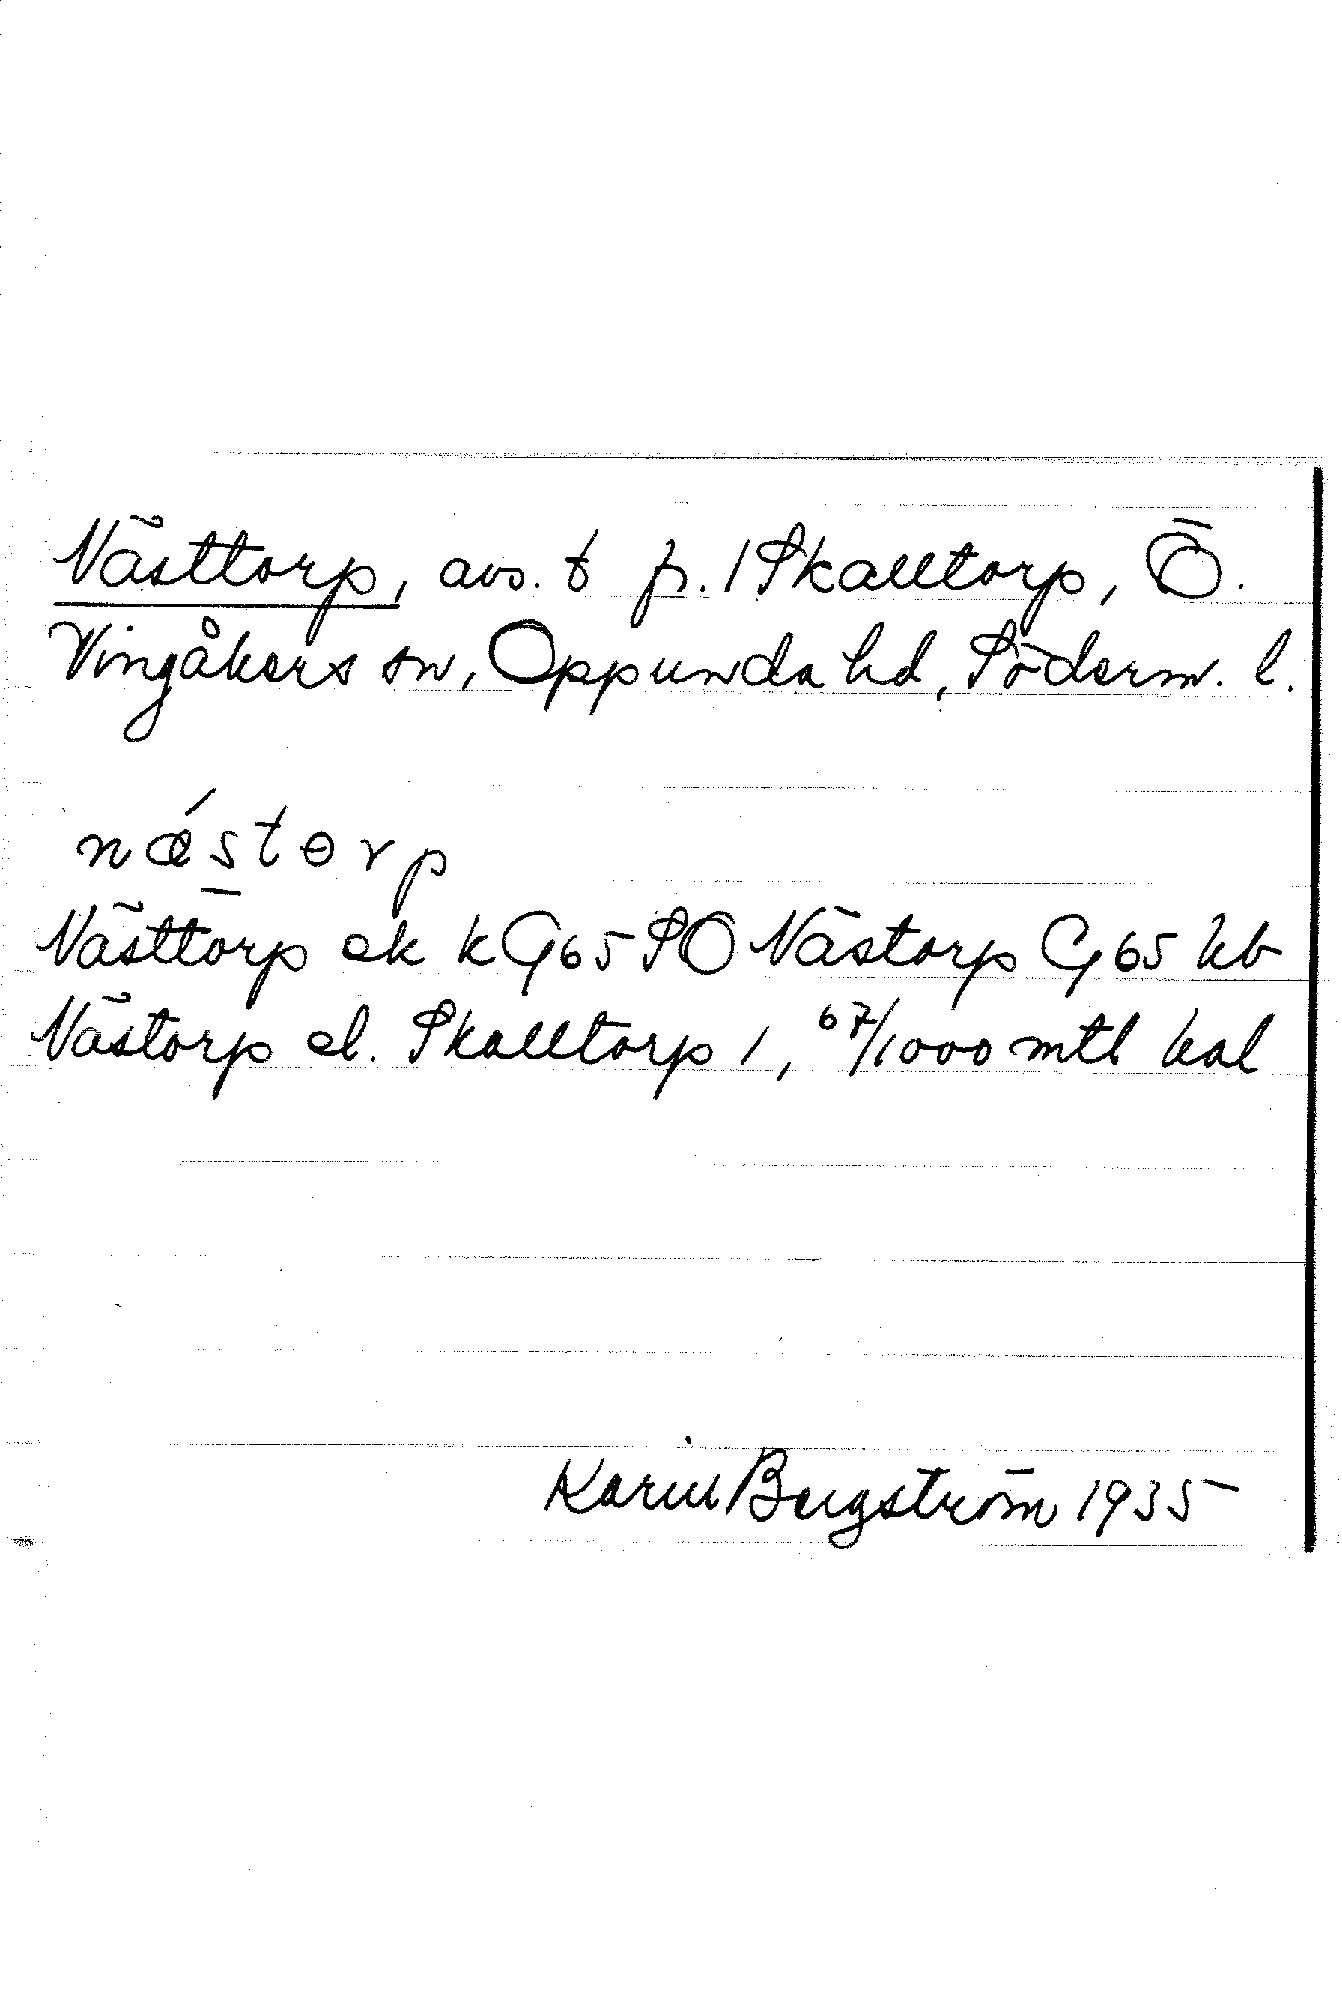 Nästtorp, avs. t fr. 1 Skalltorp, Ö.
Vingåkers sn, Oppunda hd, Söderm. l.
næ´stɵrp
Nästtorp ek k G65 SO Nästorp G65 hb
Nästorp el. Skalltorp 1, 67/1000 mtl kal
Karin Bergström 1935